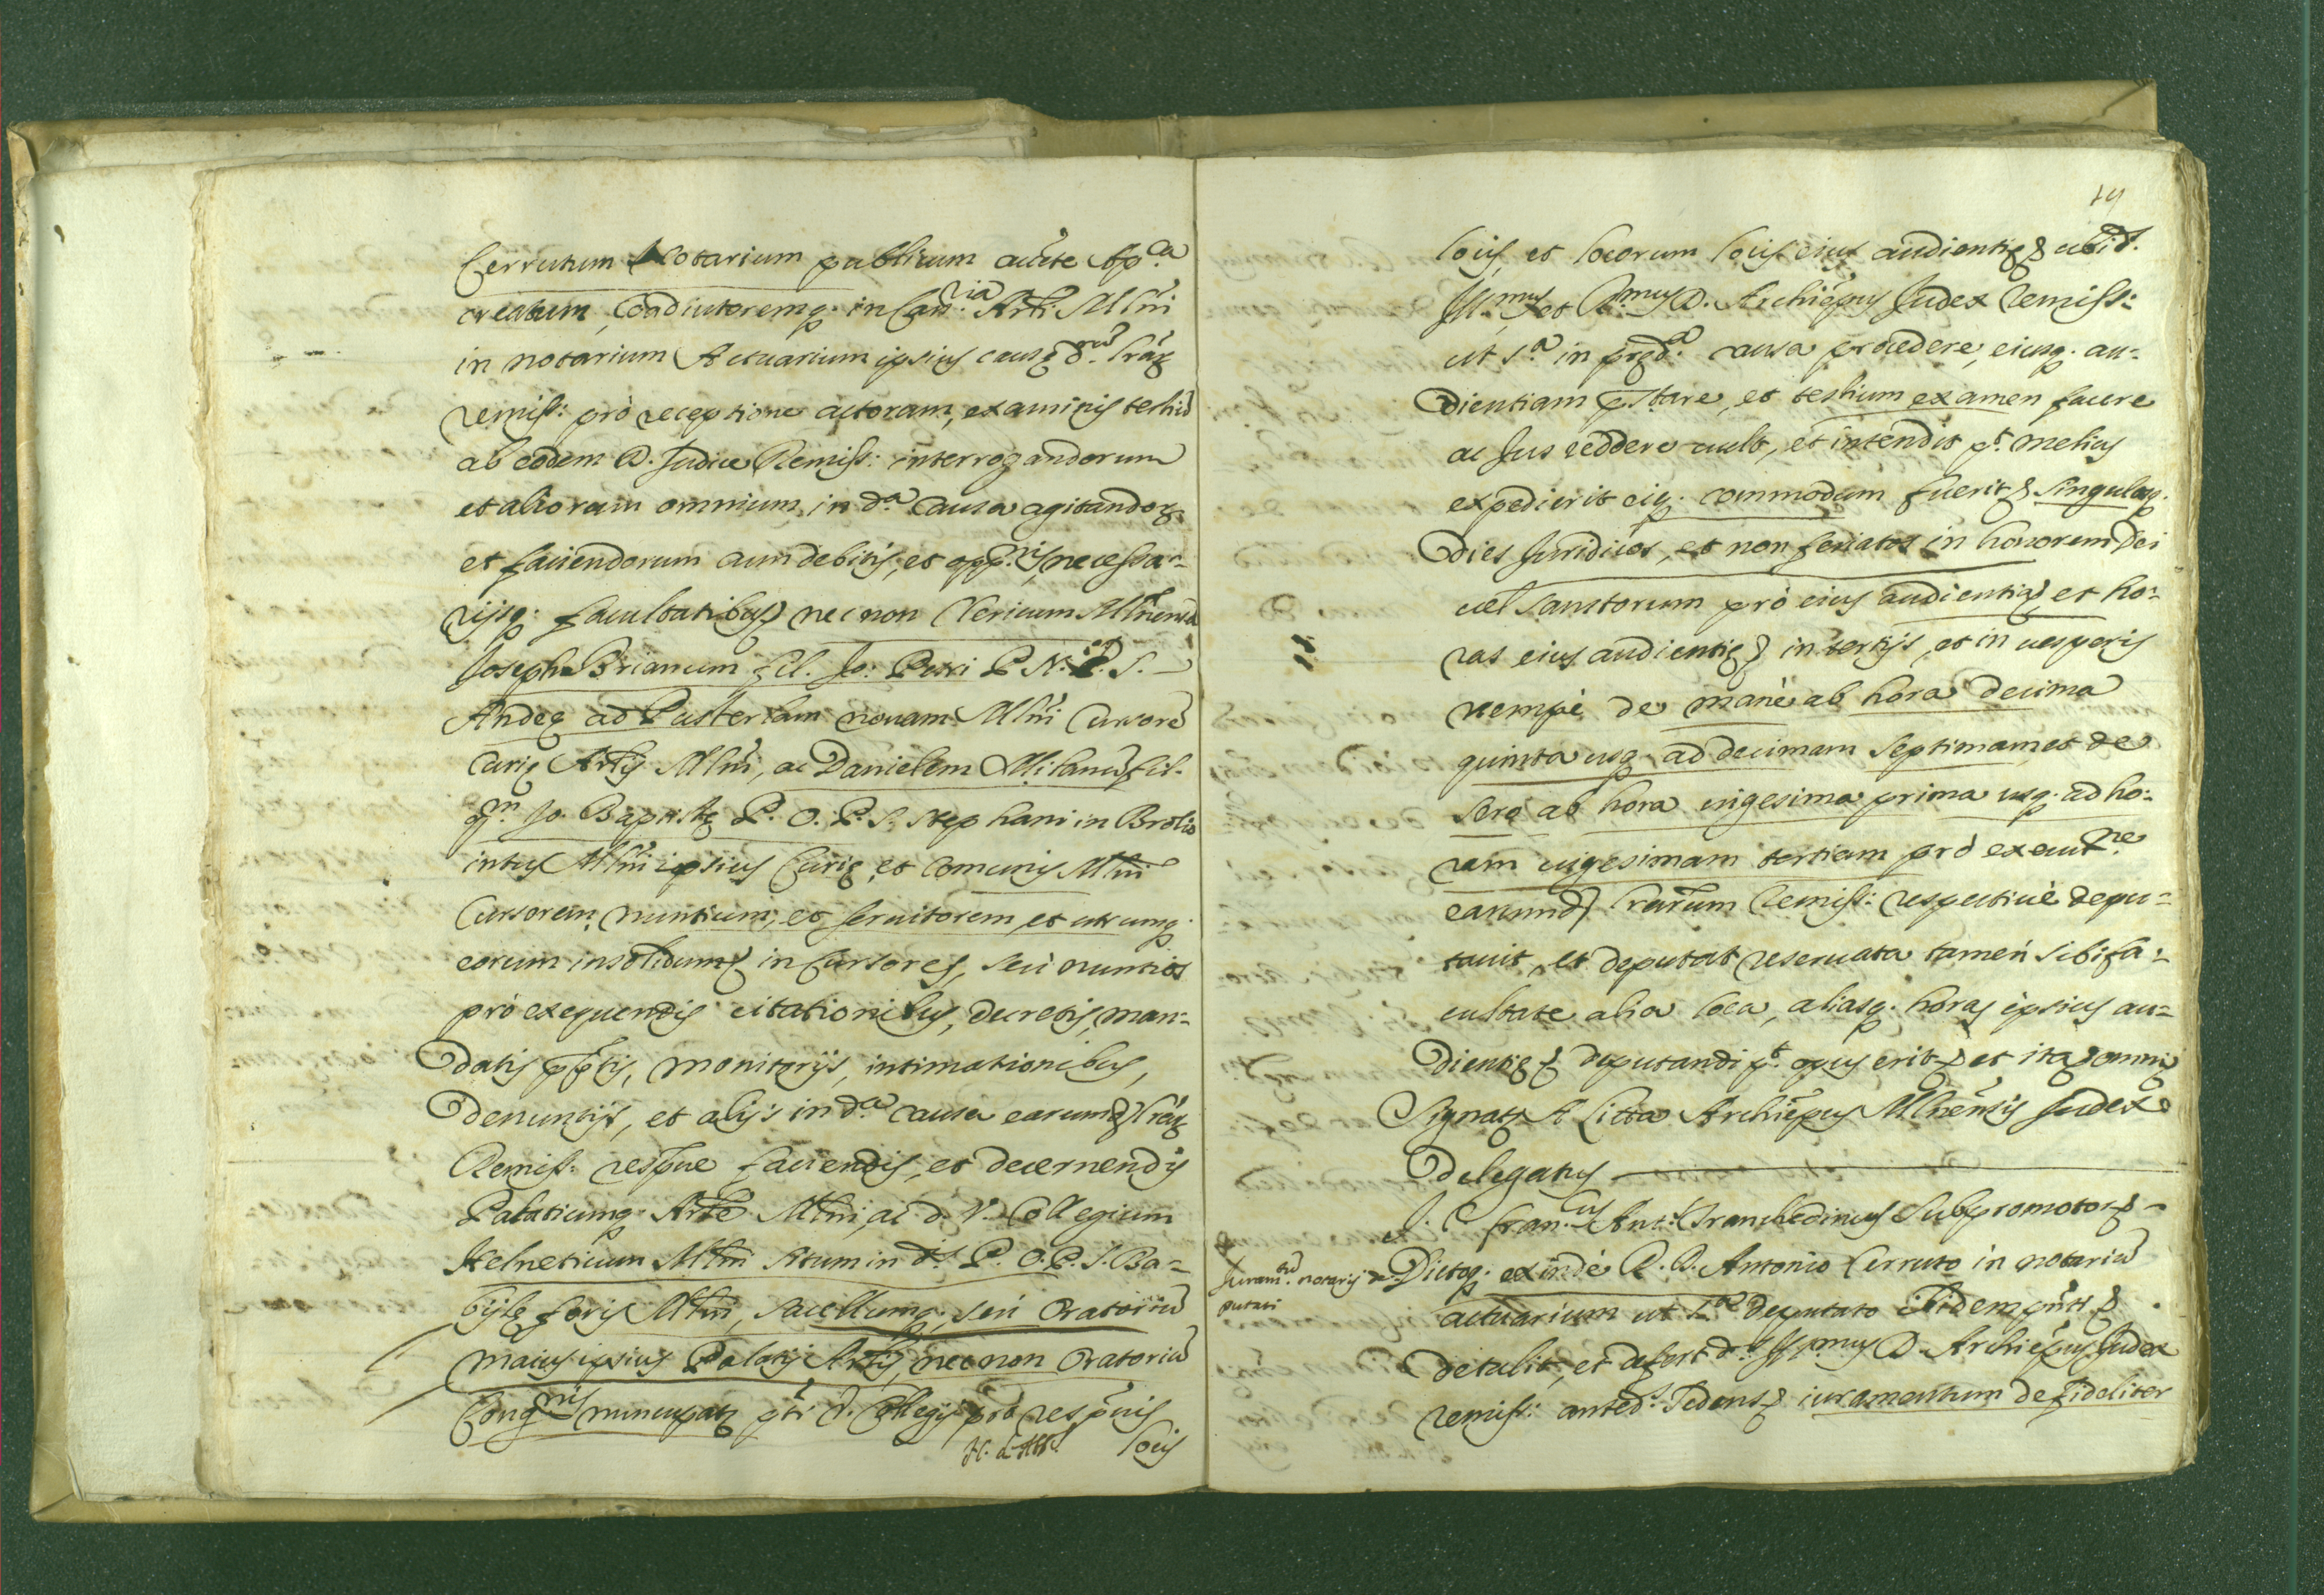 Cerrutum Notarium publicum aucte App.ca
creatum, Coadiutoremq. in Can.ria Arli Mlni
in notarium Actuarium ipsius causę d.rum lrarum
remiss: prò receptione actorum, examinis testiũ
ab eodem D. Judice Remiss: interrogandorum
et aliorum omnium in d.a causa agitandorum
et faciendorum cum debitis, et opp.nis, necessa=
rijsq. facultatibus, necnon Clericum Mlnensẽ
Joseph Brianum fil. Jo: Petri P. N. P. S.
Andeę ad Pusterlam novam Mlni Cursorẽ
Curię Arlis Mlni, ac Danielem Milanũ fil.
q.m Jo. Baptistę P. O. P. S. Stephani in Brolio
intus Mlni ipsius Curię, et comunis Mlni
Cursorem, nuntium, et servitorem, et utrumq.
eorum insolidum in Cursores, seù nuntios
prò exequendis citationibus, decretis, man=
datis pptis, monitorijs, intimationibus,
denuntijs, et alijs in d.a causa earumd. lrarum
Remiss. respue faciendis, et decernendis
Palatiumq. Arle Mlni, ac d. V. Collegium
Helveticum Mlni situm in d.is P. O. P. S. Ba=
bijle foris Mlni, sacellumq. seù Oratoriũ
maius ipsius Palatij Arlis, necnon Oratoriũ
Cong.nis nuncupatę pti V. Collegij prò respuis
locis
19
locis, et locorum locis eius audientię ubi d.
Ill.mus et R.mus D. Archiepus Judex remiss:
ut s.a in pręd.a causa procedere, eiusq. au=
dientiam pstare, et testium examen facere
ac Jus reddere vult, et intendit pt. melius
expedierit eiq. commodum fuerit singulosq.
dies Juridicos, et non feriatos in honorem Dei
vel Sanctorum prò eius audientia, et ho=
ras eius audientię in tertijs, et in vesperis
nempè de manè ab hora decima
quinta usq. ad decimam septimam, et de
sero ab hora vigesima prima usq. ad ho=
ram vigesimam tertiam prò execut.ne
earumd. lrarum remiss: respectivè depu=
tavit, et deputat reservata tamen sibi fa=
cultate alia loca, aliasq. horas ipsius au=
dientię deputandi pt. opus erit et ita omni
Signat. A Litta Archiepus Mlnensis Judex
Delegatus
J. C. Fran.cus Ant. Tranchedinus Subpromotor
Juram.tum notarij de=
putati
Dictoq. exindè D. D. Antonio Cerruto in notariũ
actuarium ut s.a deputato ibidem pnti
detulit, et defert d.s Ill.mus D. Archiepus Judex
remiss: anted.s sedens iuramentum de fideliter